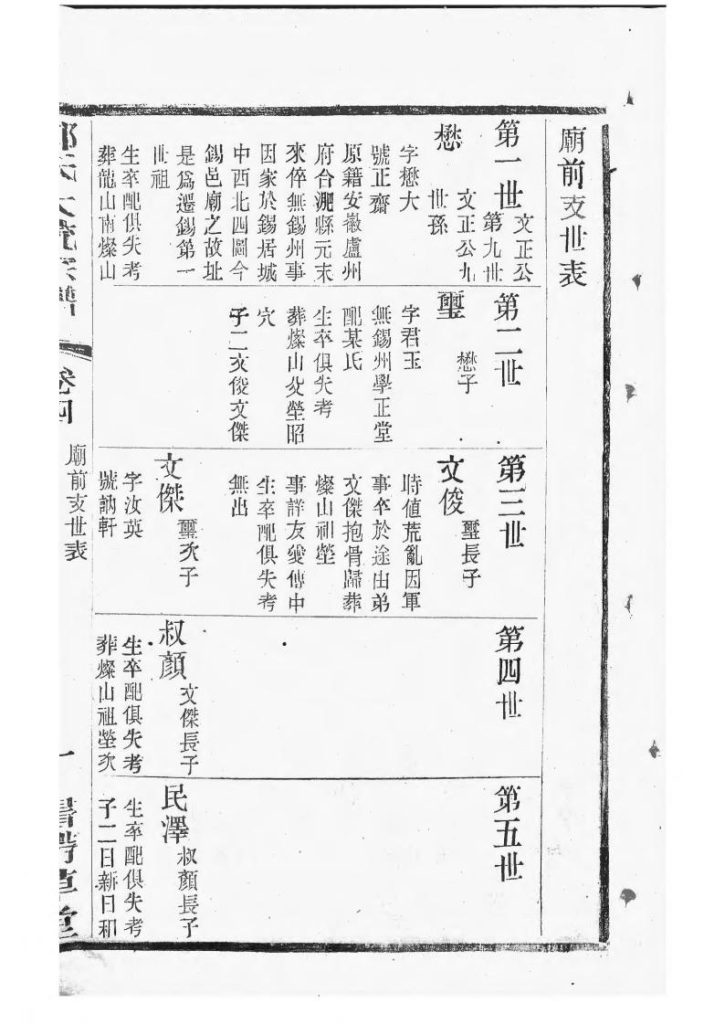 廟前支世表
第一世
文正公第九世
懋
文正公九世孫
字懋大
號正齋
原籍安徽盧州
府合淝縣元末
來倅無錫州事
因家於錫居城
中西北四圖今
錫邑廟之故址
是爲遷錫第一
世祖
生卒配俱失考
葬龍山南燦山
第二世
璽
懋子
字君玉
無錫州學正堂
配某氏
生卒俱失考
葬燦山父塋昭
穴
子二文俊文傑
第三世
文俊
璽長子
時値荒亂因軍
事卒於途由弟
文傑抱骨歸葬
燦山祖塋
事詳友爱傳中
生卒配俱失考
無出
文傑
璽次子
字汝英
號訥軒
第四世
叔顏
文傑長子
生卒配俱失考
葬燦山祖塋次
第五世
民澤
叔顏長子
生卒配俱失考
子二日新日和
大統宗譜
卷四
廟前支世表
一